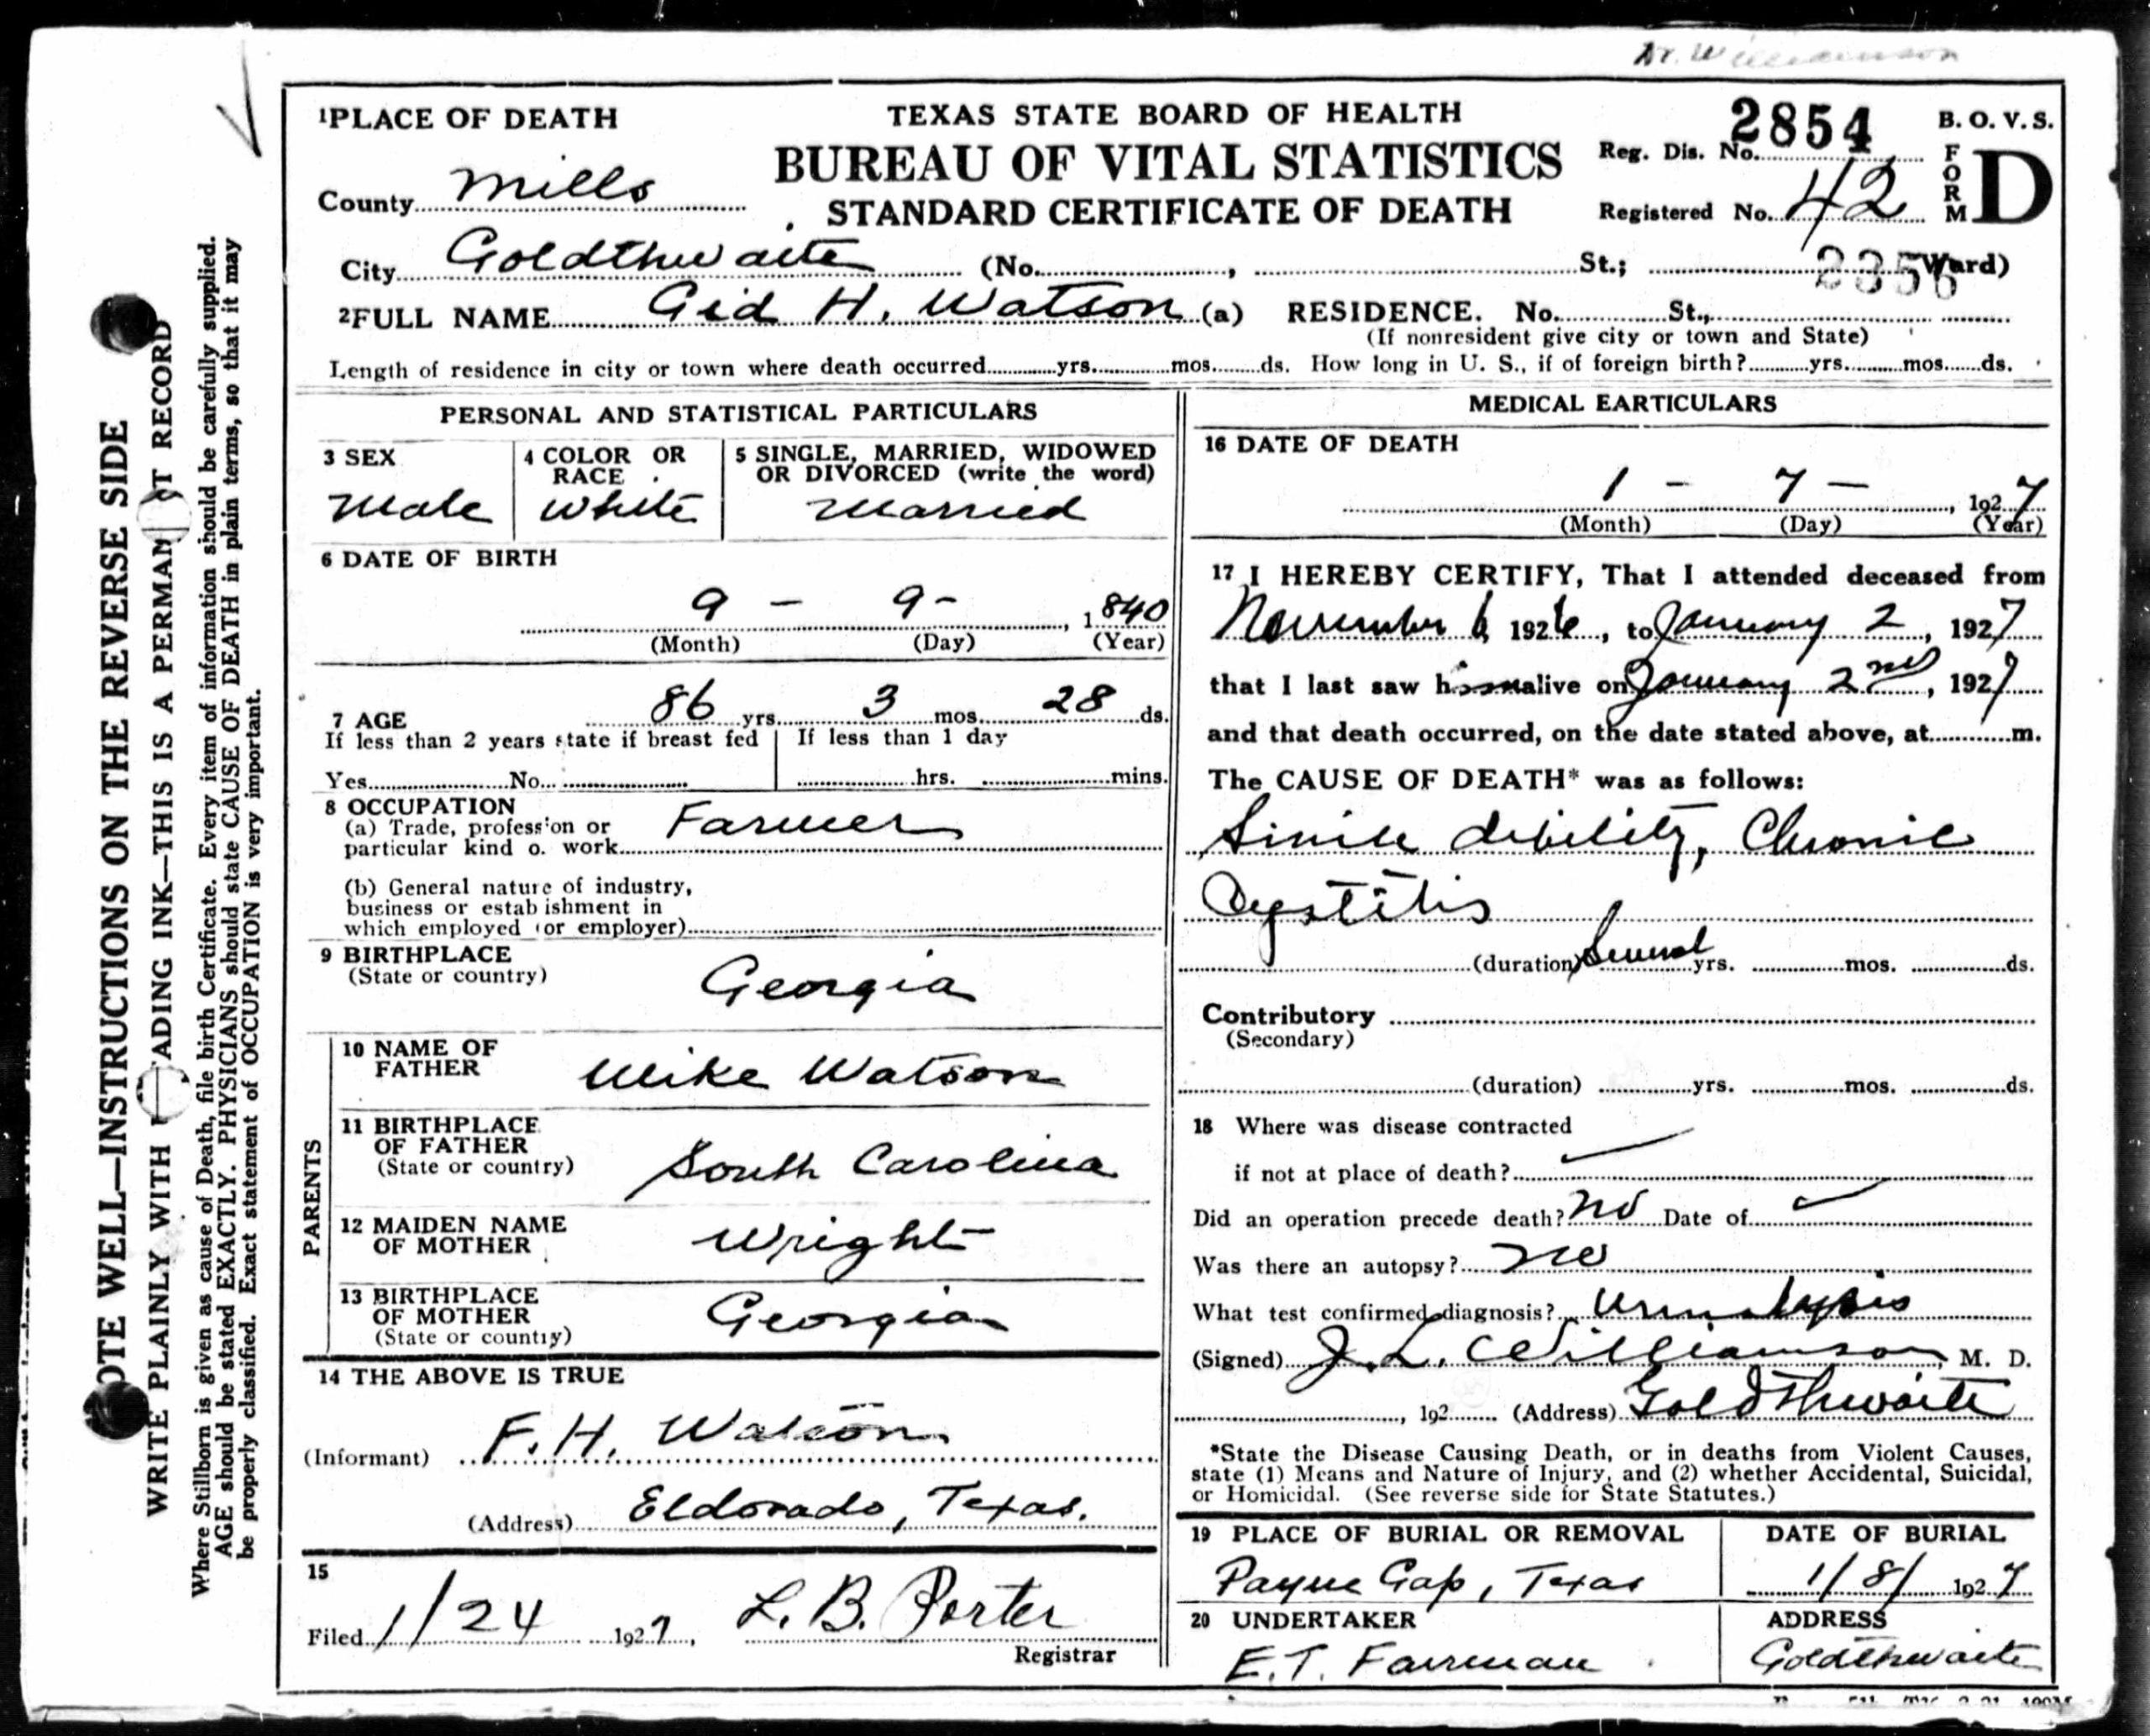 Dr. Williamson
1PLACE OF DEATH
TEXAS STATE BOARD OF HEALTH
BUREAU OF VITAL STATISTICS
STANDARD CERTIFICATE OF DEATH
Reg. Dis. No. 2854
Registered No. 42
B. O. V. S.
FORM D
County Mills
City Goldthwaite (No. , St.; Ward)
2356
2FULL NAME Gid H. Watson (a) RESIDENCE. No. St.,
(If nonresident give city or town and State)
Length of residence in city or town where death occurred yrs. mos. ds. How long in U. S., if of foreign birth? yrs. mos. ds.
PERSONAL AND STATISTICAL PARTICULARS
3 SEX
Male
4 COLOR OR
RACE
White
5 SINGLE, MARRIED, WIDOWED
OR DIVORCED (write the word)
Married
6 DATE OF BIRTH
9 - 9 - , 1840
(Month) (Day) (Year)
7 AGE 86 yrs. 3 mos. 28 ds.
If less than 2 years state if breast fed
Yes No
If less than 1 day
hrs. mins.
8 OCCUPATION
(a) Trade, profession or
particular kind o. work Farmer
(b) General nature of industry,
business or estab ishment in
which employed (or employer)
9 BIRTHPLACE
(State or country) Georgia
PARENTS
10 NAME OF
FATHER Mike Watson
11 BIRTHPLACE
OF FATHER
(State or country) South Carolina
12 MAIDEN NAME
OF MOTHER Wright
13 BIRTHPLACE
OF MOTHER
(State or country) Georgia
14 THE ABOVE IS TRUE
(Informant) F. H. Watson
(Address) Eldorado, Texas.
15
Filed 1/24 1927, L. B. Porter
Registrar
MEDICAL EARTICULARS
16 DATE OF DEATH
1 - 7 - , 1927
(Month) (Day) (Year)
17 I HEREBY CERTIFY, That I attended deceased from
November 6, 1926, to January 2, 1927
that I last saw him alive on January 2nd, 1927
and that death occurred, on the date stated above, at m.
The CAUSE OF DEATH* was as follows:
Sinile debility, Chronic
Cystitis
(duration) Several yrs. mos. ds.
Contributory
(Secondary)
(duration) yrs. mos. ds.
18 Where was disease contracted
if not at place of death?
Did an operation precede death? No Date of
Was there an autopsy? no
What test confirmed diagnosis? Urinalysis
(Signed) J. L. Williamson, M. D.
, 192 (Address) Goldthwaite
*State the Disease Causing Death, or in deaths from Violent Causes,
state (1) Means and Nature of Injury, and (2) whether Accidental, Suicidal,
or Homicidal. (See reverse side for State Statutes.)
19 PLACE OF BURIAL OR REMOVAL
Payne Gap, Texas
DATE OF BURIAL
1/8/ 1927
20 UNDERTAKER
E. T. Fairman
ADDRESS
Goldthwaite
OTE WELL—INSTRUCTIONS ON THE REVERSE SIDE
WRITE PLAINLY WITH ADING INK—THIS IS A PERMAN T RECORD
Where Stillborn is given as cause of Death, file birth Certificate. Every item of information should be carefully supplied.
AGE should be stated EXACTLY. PHYSICIANS should state CAUSE OF DEATH in plain terms, so that it may
be properly classified. Exact statement of OCCUPATION is very important.